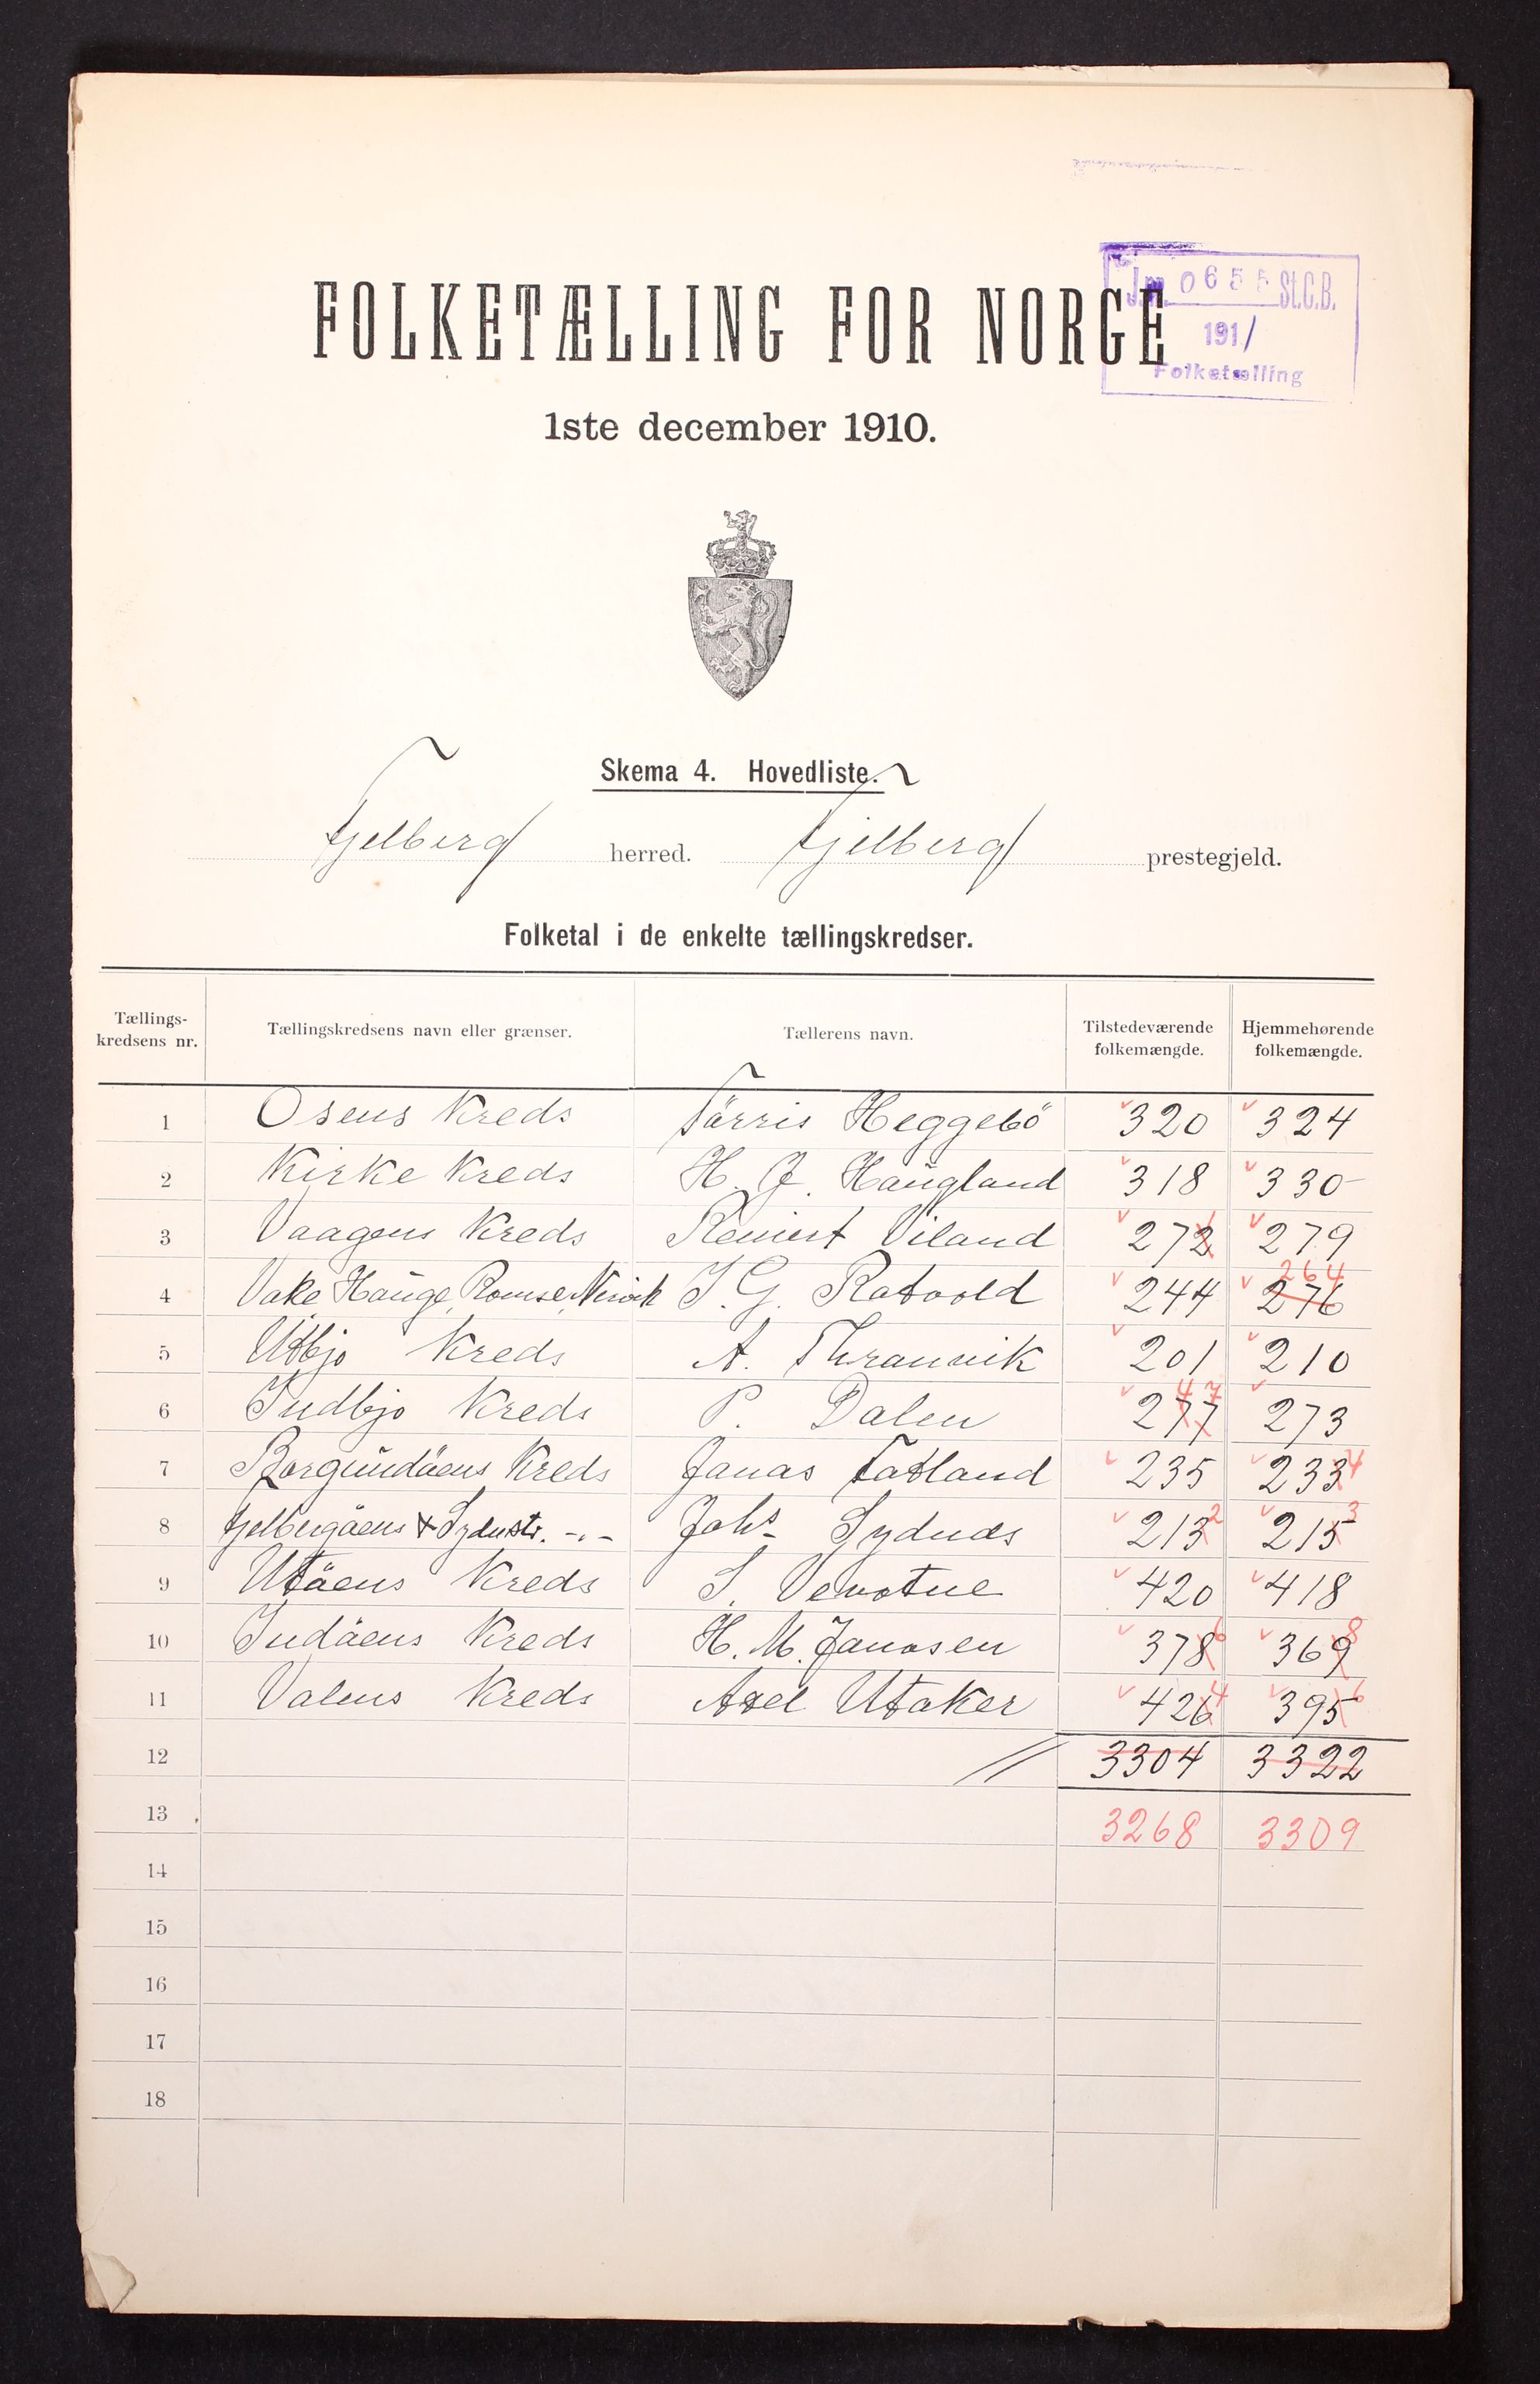 Jnr. 0655 St.C.B.
1911
Folketælling
FOLKETÆLLING FOR NORGE
1ste december 1910.
Skema 4. Hovedliste.
Fjelberg herred. Fjelberg prestegjeld.
Folketal i de enkelte tællingskredser.
Tællingskredsens nr. Tællingskredsens navn eller grænser. Tællerens navn. Tilstedeværende folkemængde. Hjemmehørende folkemængde.
1 Osens Kreds Tørris Heggebö 320 324
2 Kirke Kreds H. J. Haugland 318 330
3 Vaagens Kreds Reinert Viland 272 1 279
4 Vake Hauge, Romse, Nervik I. G. Ratvold 244 276 264
5 Utbjo Kreds A. Thranvik 201 210
6 Indbjo Kreds P. Dalen 277 47 273
7 Borgundöens Kreds Janas Tatland 235 233 4
8 Fjelbergöens & Sydnstr. -"- Johs Sydnäs 213 2 215 3
9 Utöens Kreds S. Vevatne 420 418
10 Indöens Kreds H. M. Janosen 378 6 369 8
11 Valens Kreds Axel Utaker 426 4 395 6
12 3304 3322
13 3268 3309
14
15
16
17
18